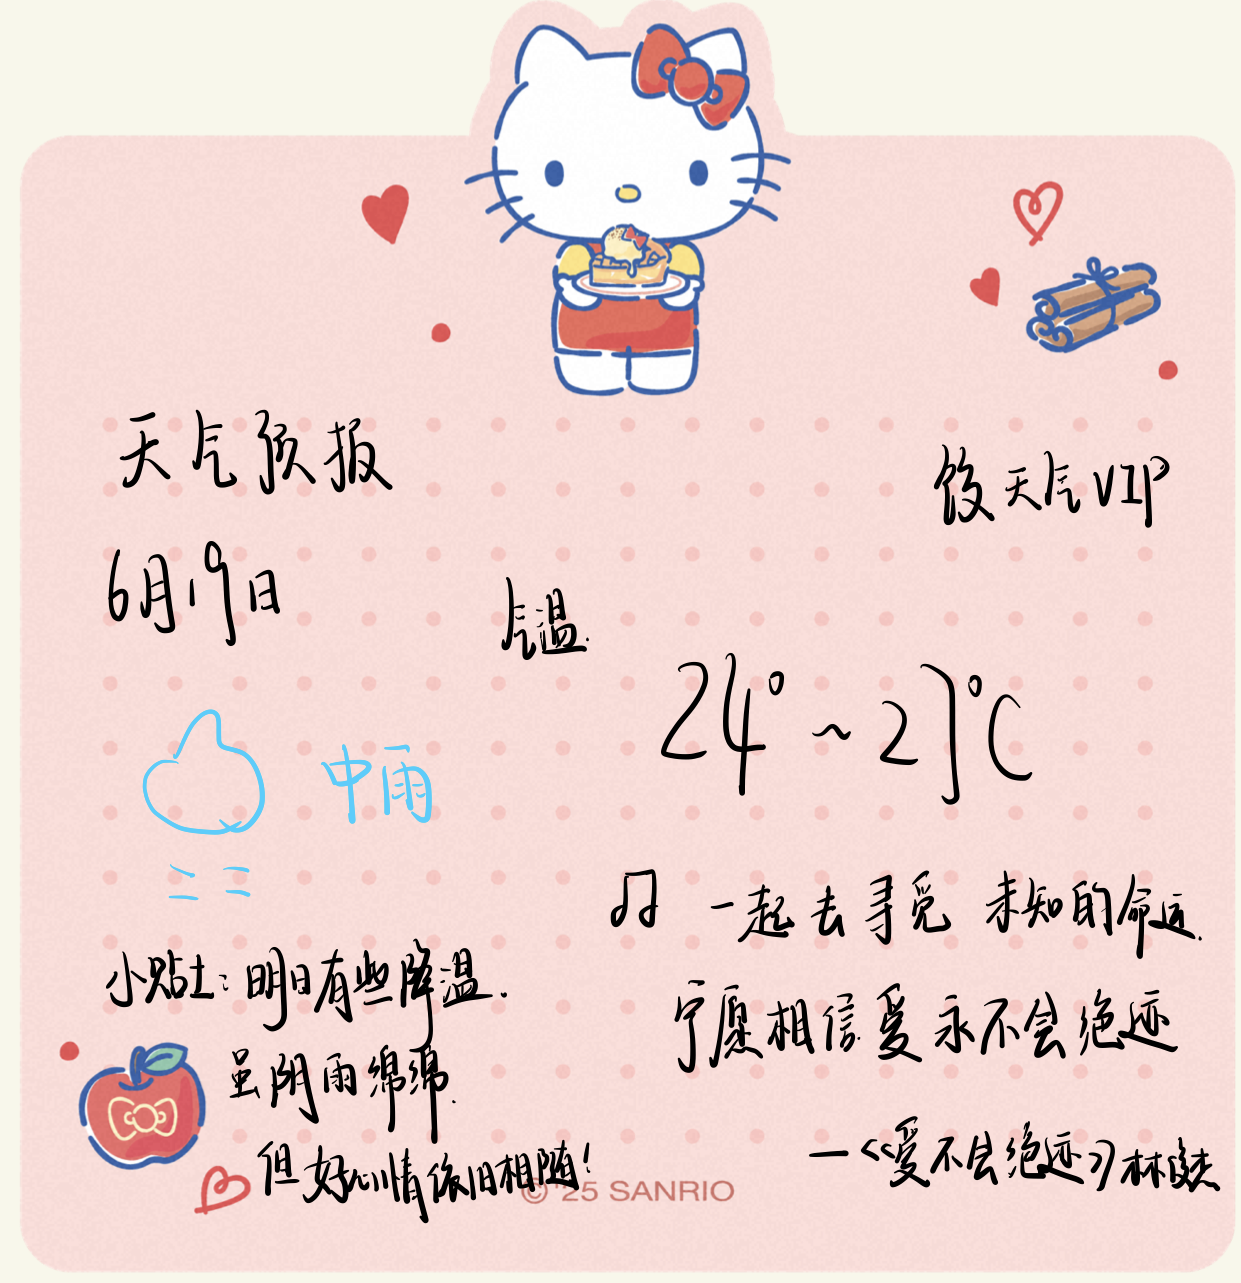 天气预报
饺天气VIP
6月19日
气温
24°~27°C
中雨
一起去寻觅 未知的命运
小贴士:明日有些降温.
宁愿相信爱永不会绝迹
虽阴雨绵绵
但好心情依旧相随!
—《爱不会绝迹》林俊杰
© '25 SANRIO